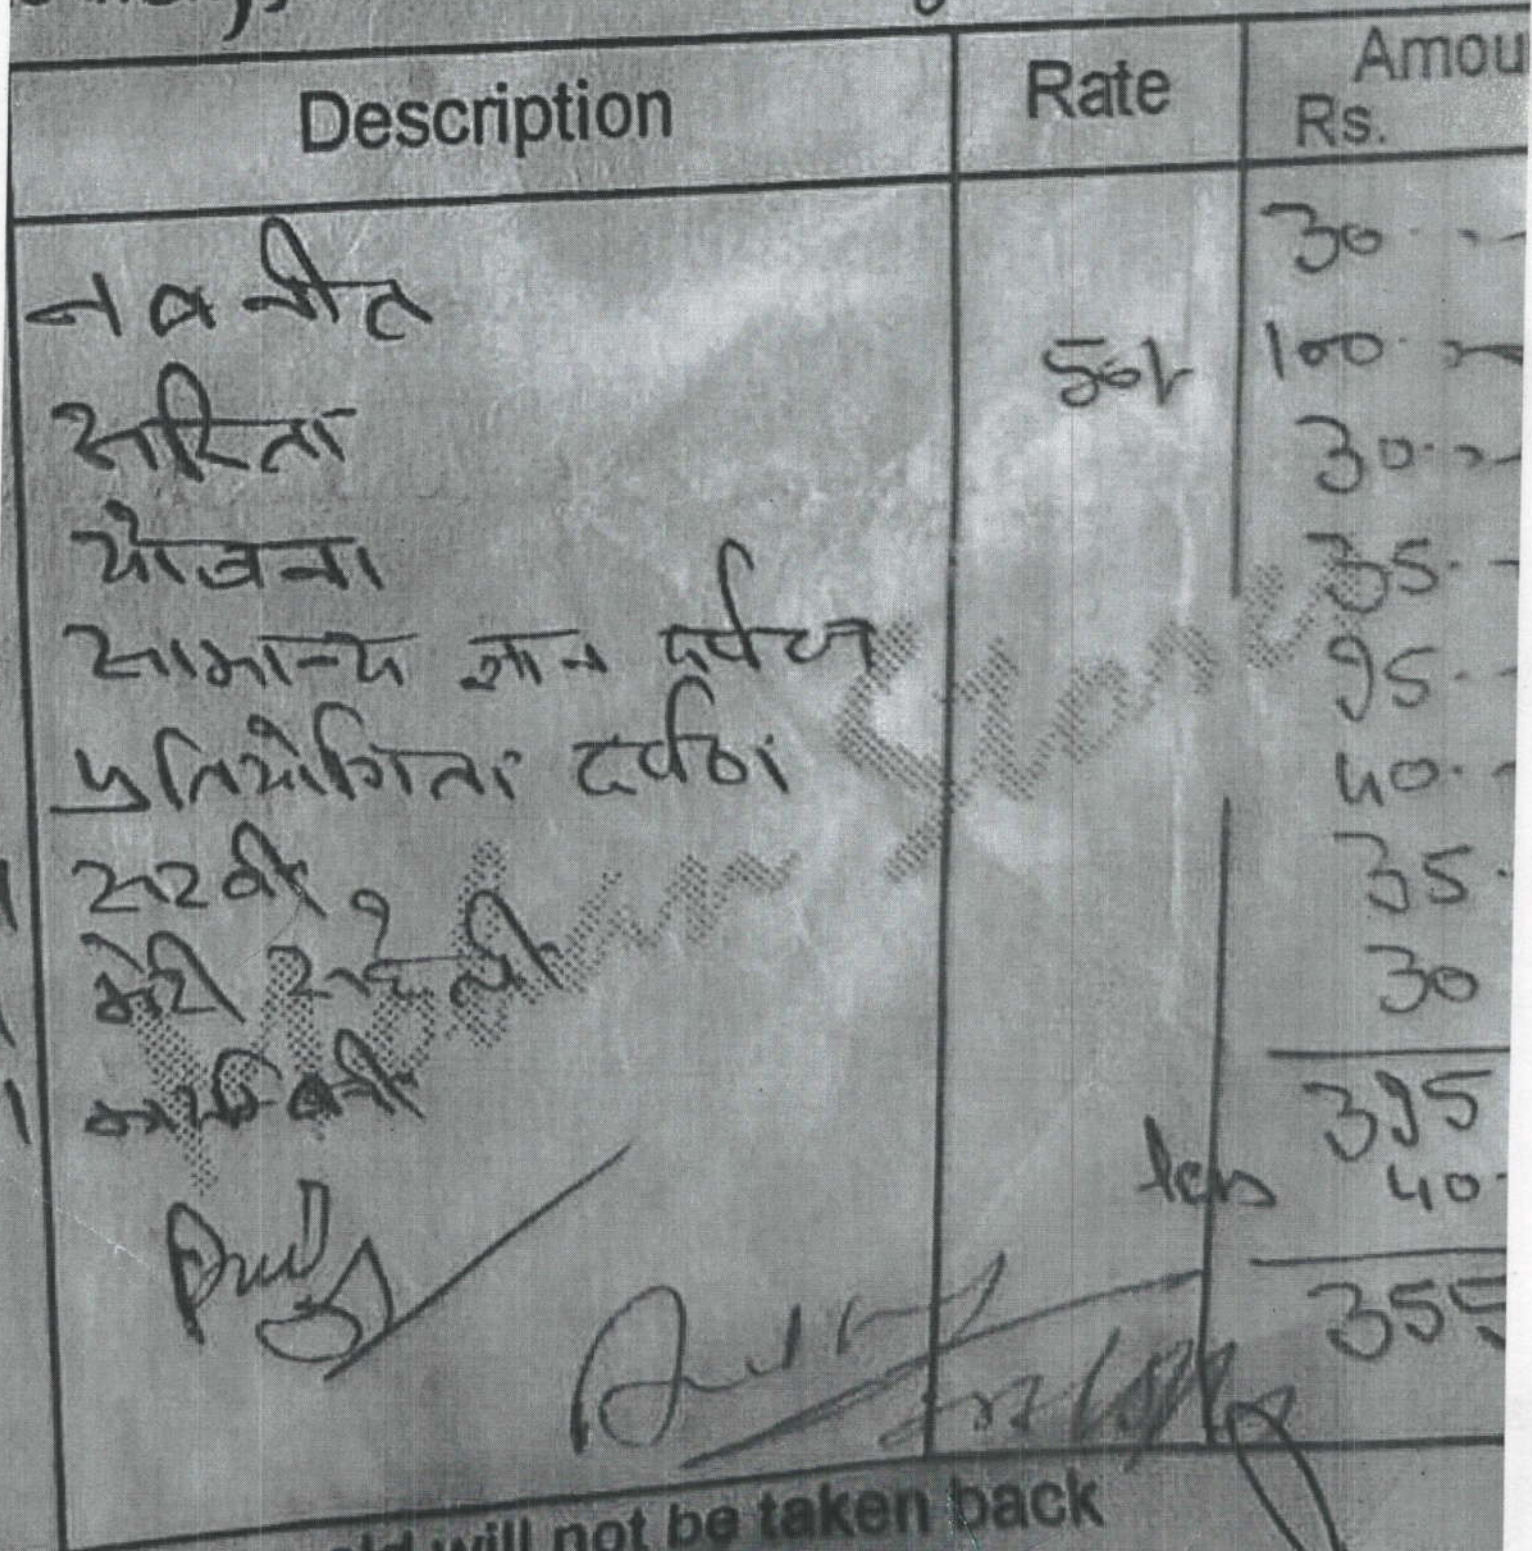 Description Rate Amou
Rs.
नवनीत 30
सरिता 50/- 100
योजना 30
सामान्य ज्ञान दर्पण 35
प्रतियोगिता दर्पण 95
सखी 40
मेरी सहेली 35
कादम्बिनी 30
395
less 40
355
will not be taken back